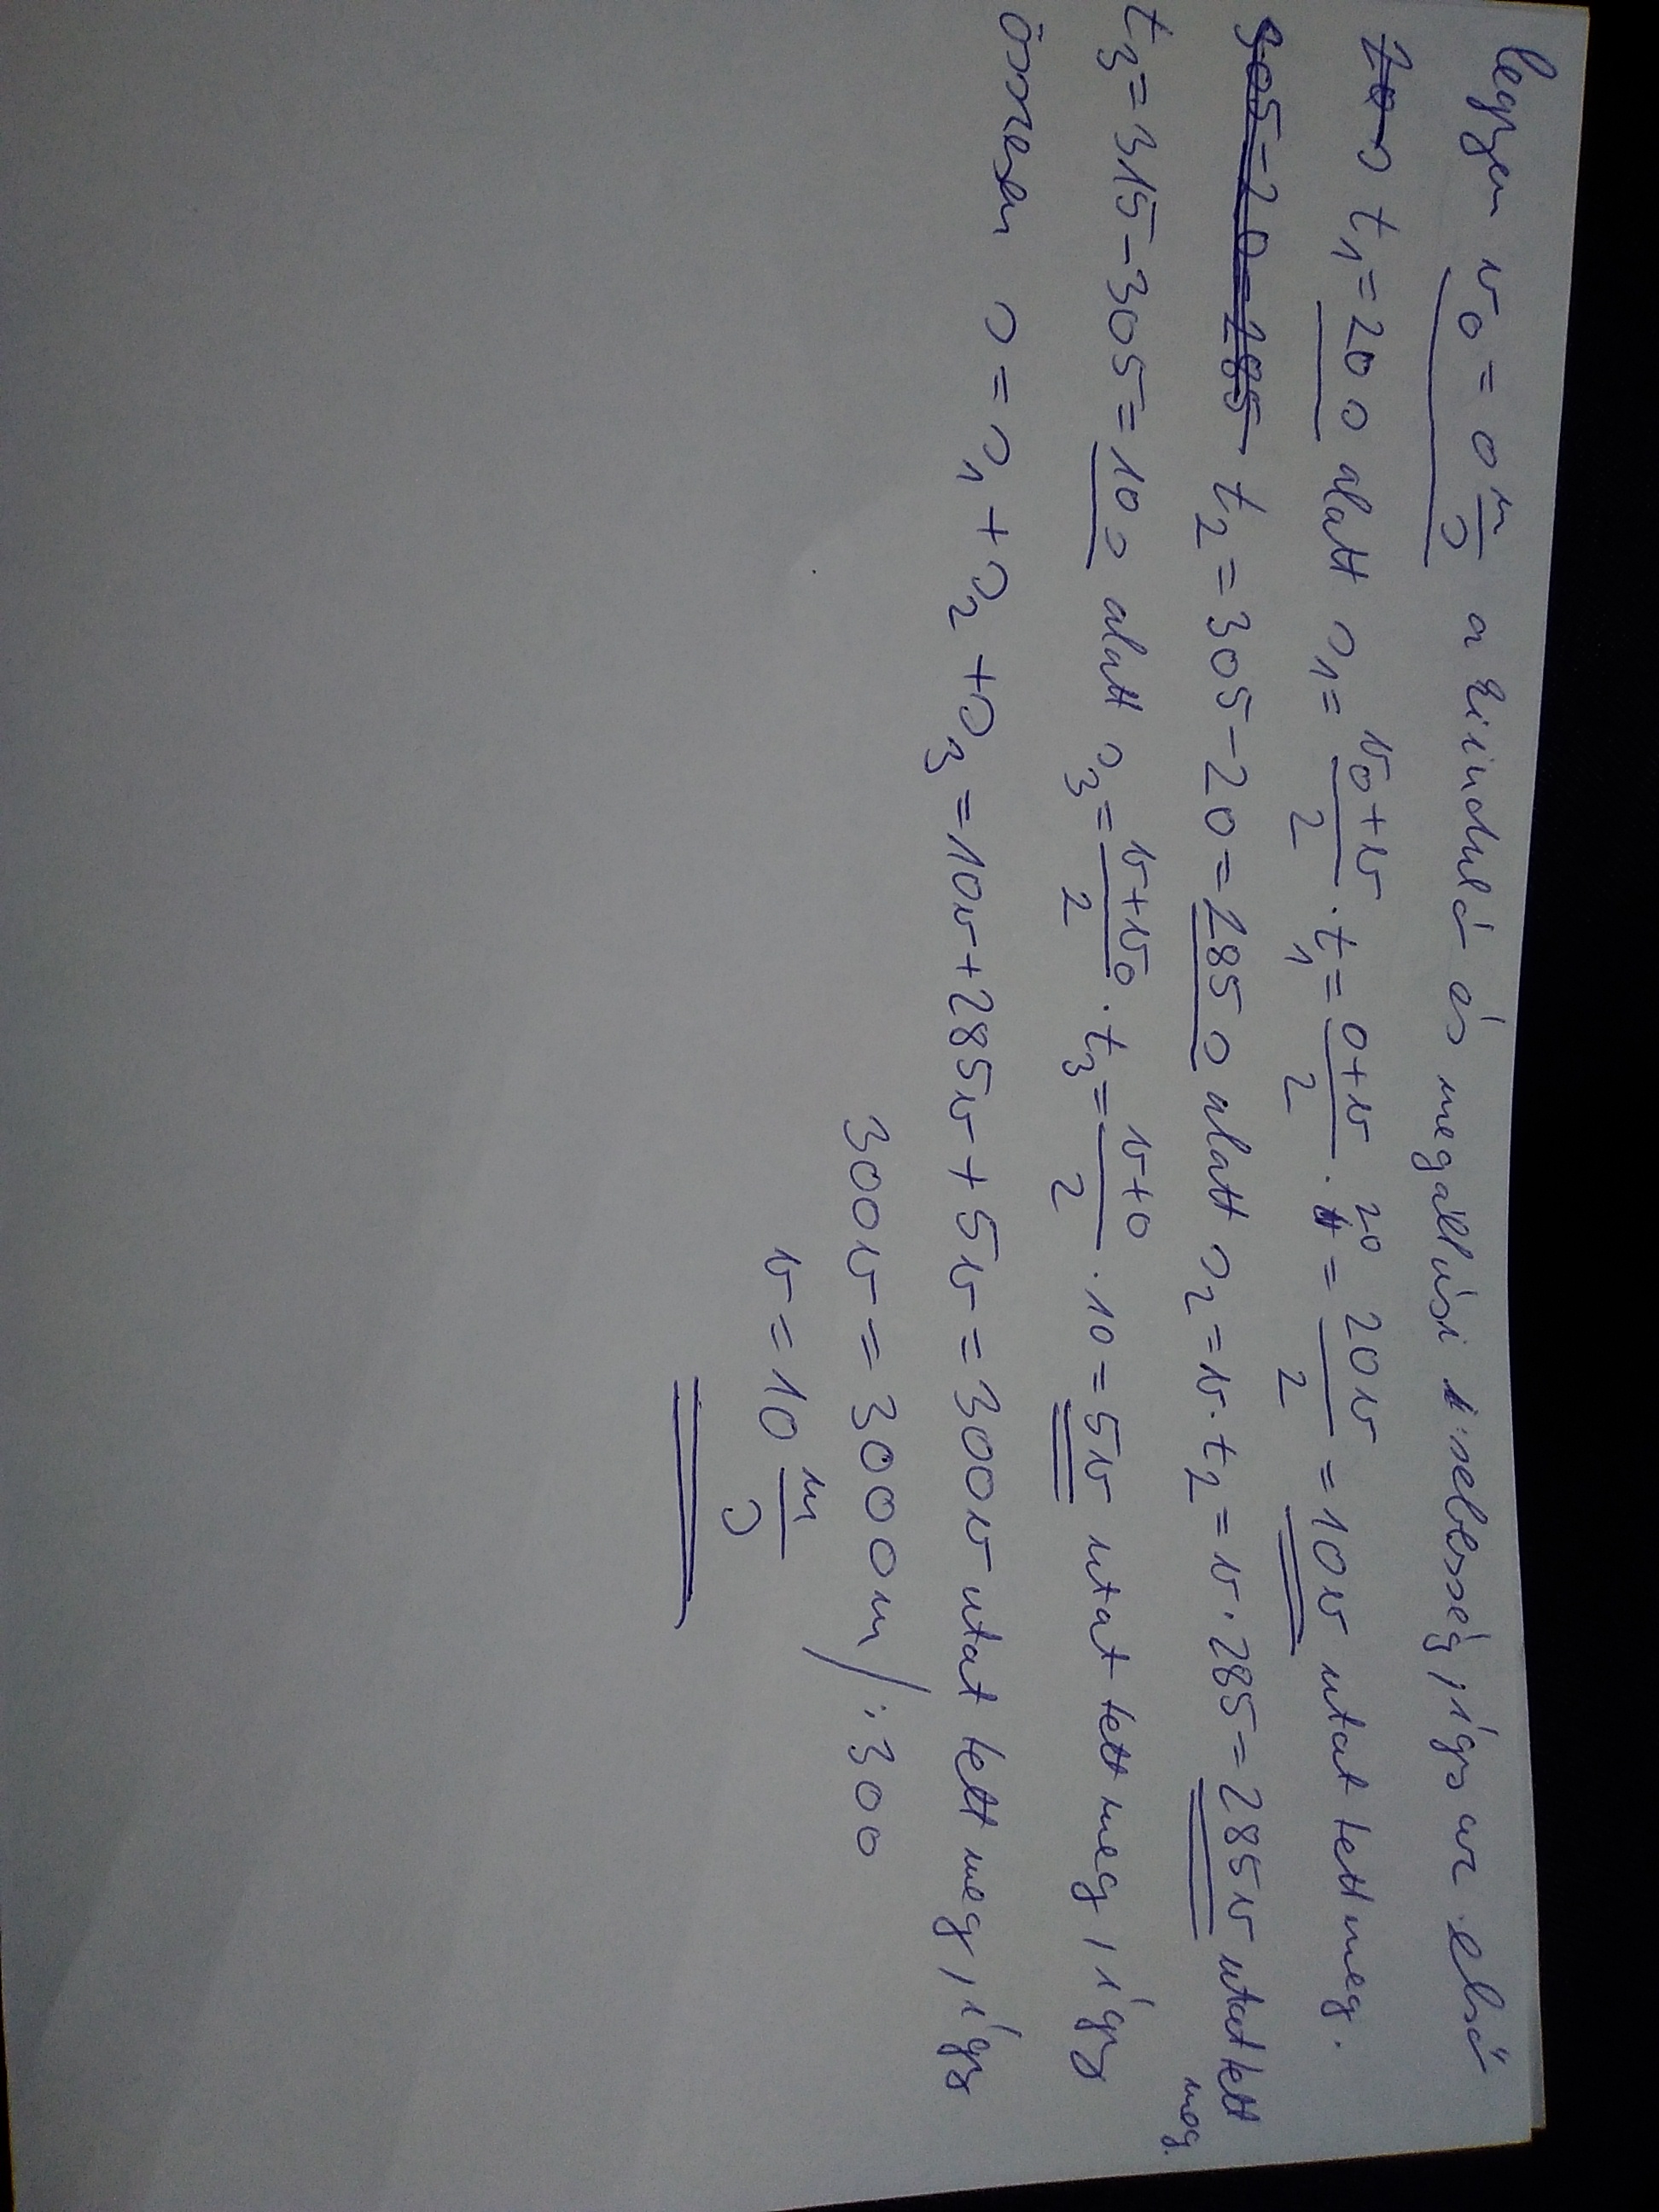 legyen v₀ = 0 m/s a kiinduló és megállási sebesség, így az első
t₁ = 20 s alatt s₁ = (v₀+v)/2 · t₁ = (0+v)/2 · 20 = 20v/2 = 10v utat tett meg.
305-20=285 t₂ = 305-20 = 285 s alatt s₂ = v·t₂ = v·285 = 285v utat tett meg.
t₃ = 315-305 = 10 s alatt s₃ = (v+v₀)/2 · t₃ = (v+0)/2 · 10 = 5v utat tett meg, így
összesen s = s₁ + s₂ + s₃ = 10v + 285v + 5v = 300v utat tett meg, így
300v = 3000m /:300
v = 10 m/s